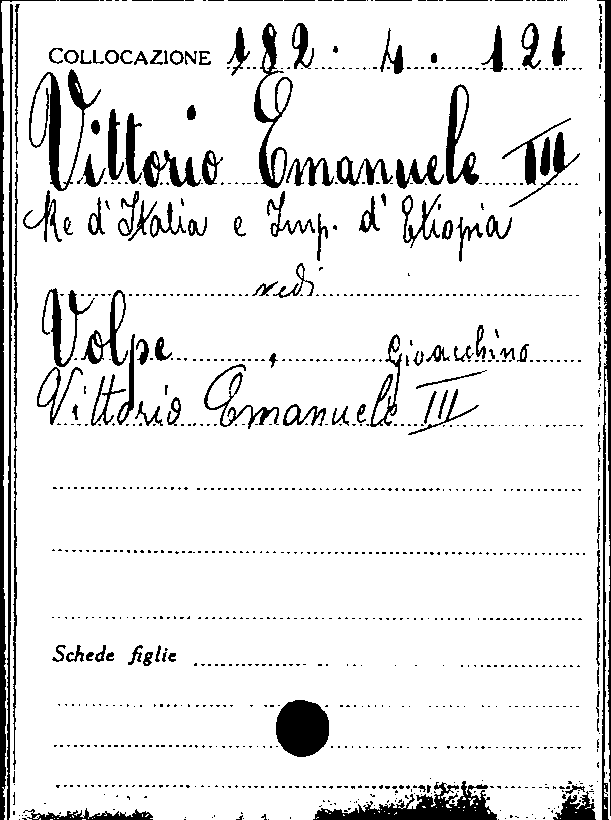 COLLOCAZIONE 182. 4. 121
Vittorio Emanuele III
Re d'Italia e Imp. d'Etiopia
vedi
Volpe, Gioacchino
Vittorio Emanuele III
Schede figlie